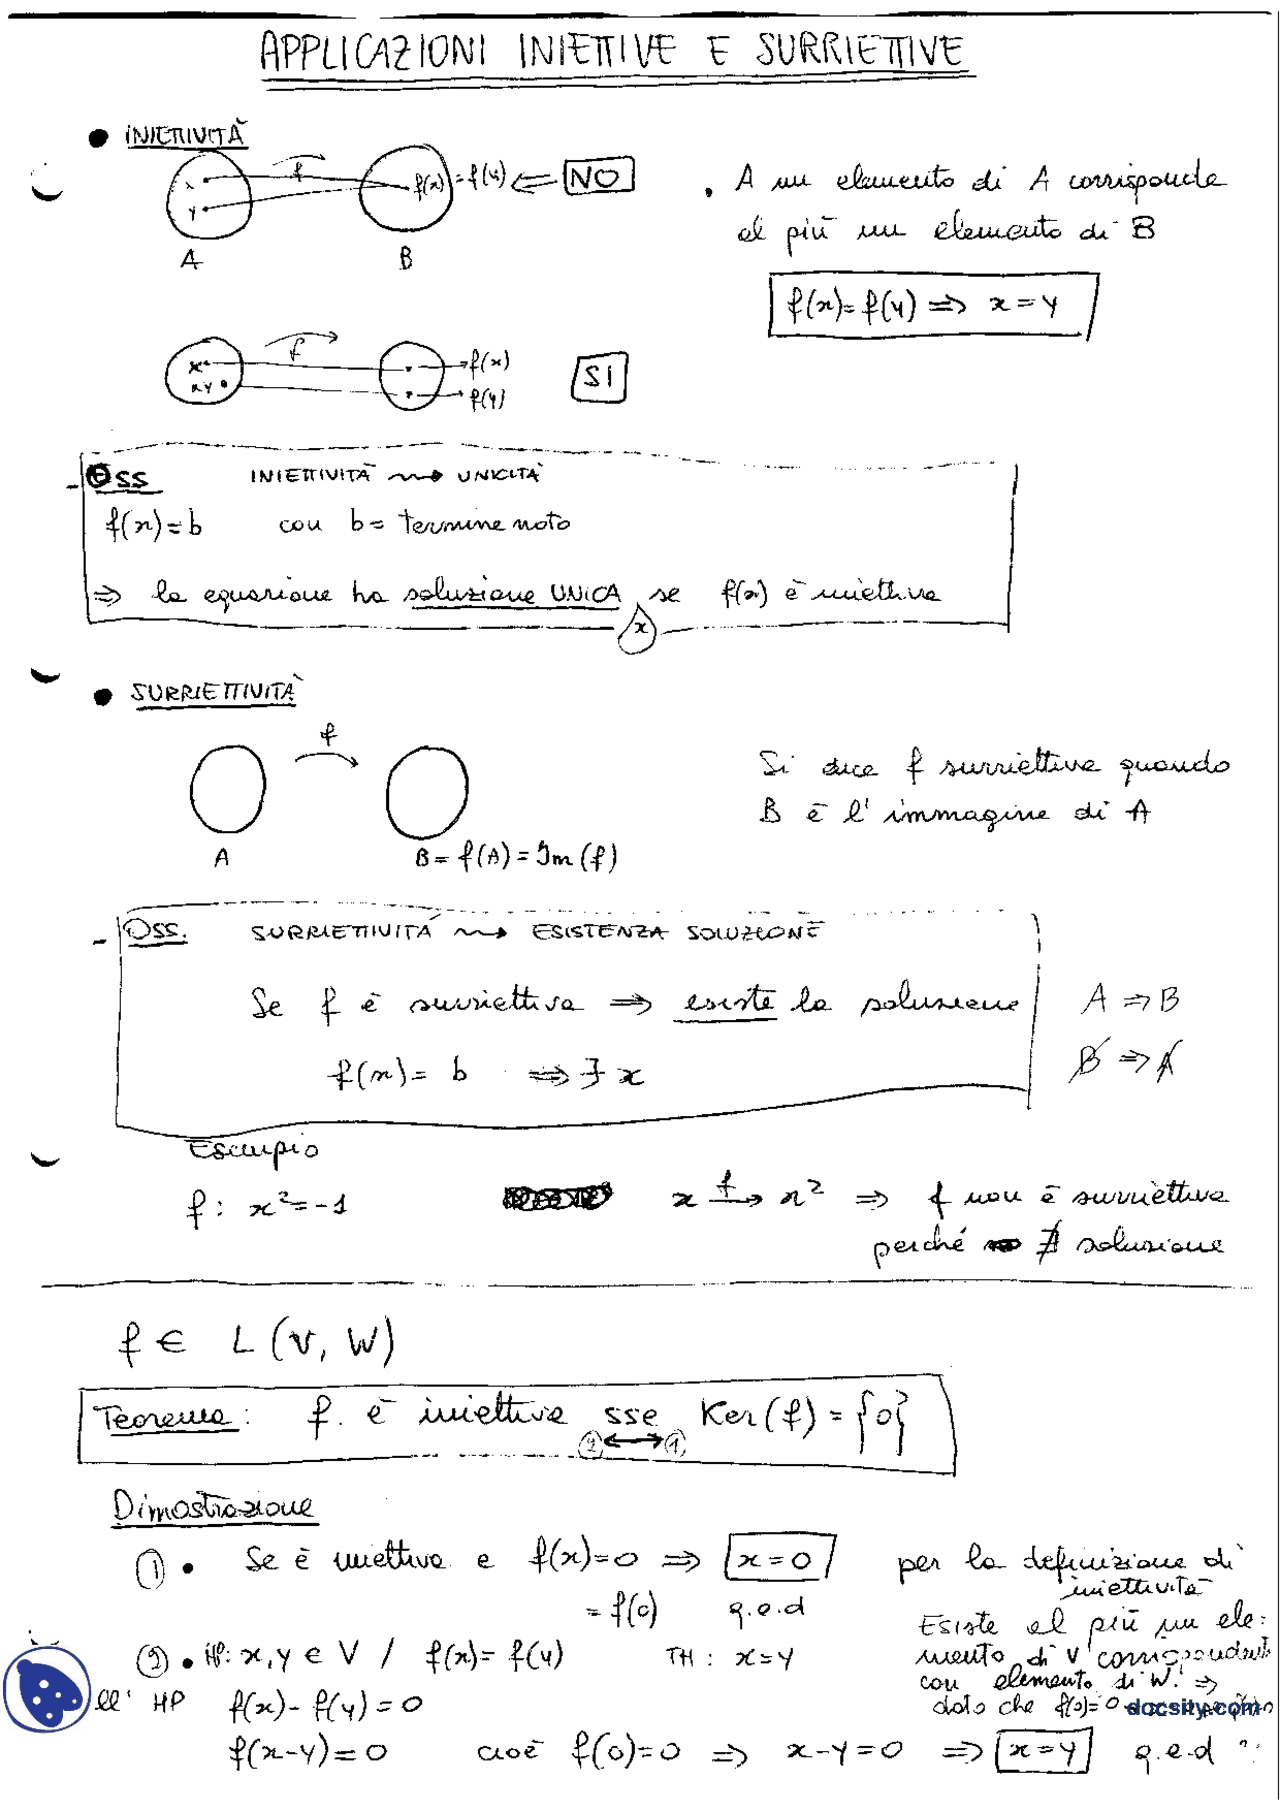 APPLICAZIONI INIETTIVE E SURRIETTIVE
• INIETTIVITÀ
x y f f(x) = f(y) ⇐ NO
A B
. A un elemento di A corrisponde
al più un elemento di B
f(x) = f(y) ⇒ x = y
x y f → f(x) → f(y) SI
- Oss INIETTIVITÀ ⇝ UNICITÀ
f(x) = b con b = termine noto
⇒ la equazione ha soluzione UNICA, se f(x) è iniettiva
x
• SURRIETTIVITÀ
f
A B = f(A) = Im(f)
Si dice f surriettiva quando
B è l'immagine di A
- Oss. SURRIETTIVITÀ ⇝ ESISTENZA SOLUZIONE
Se f è surriettiva ⇒ esiste la soluzione
f(x) = b ⇒ ∃ x
A ⇒ B
B ⇒ A
Esempio
f: x² = -1 x →f x² ⇒ f non è surriettiva
perché ∄ soluzione
f ∈ L(V, W)
Teorema: f. è iniettiva sse Ker(f) = {0}
② ↔ ①
Dimostrazione
① • Se è iniettiva e f(x) = 0 ⇒ x = 0 per la definizione di
iniettività
= f(0) q.e.d
Esiste al più un ele=
mento di V corrispondente
con elemento di W. ⇒
dato che f(0) = 0
② • HP: x, y ∈ V / f(x) = f(y) TH: x = y
ll' HP f(x) - f(y) = 0
f(x-y) = 0 cioè f(0) = 0 ⇒ x-y = 0 ⇒ x = y q.e.d
docsity.com